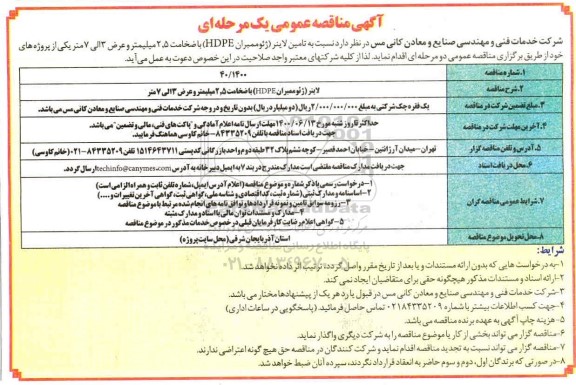 آگهی مناقصه عمومی یک مرحله ای
شرکت خدمات فنی و مهندسی صنایع و معادن کانی مس در نظر دارد نسبت به تامین لاینر (ژئوممبران HDPE) با ضخامت ۲٫۵ میلیمتر و عرض ۳ الی ۷ متر یکی از پروژه های
خود از طریق برگزاری مناقصه عمومی دو مرحله ای اقدام نماید. لذا از کلیه شرکتهای معتبر واجد صلاحیت در این خصوص دعوت به عمل می آید.
۱.شماره مناقصه ۴۰/۱۴۰۰
۲.شرح مناقصه لاینر (ژئوممبران HDPE) با ضخامت ۲٫۵ میلیمتر و عرض ۳ الی ۷ متر
۳.مبلغ تضمین شرکت در مناقصه یک فقره چک شرکتی به مبلغ ۲/۰۰۰/۰۰۰/۰۰۰ ریال (دو میلیارد ریال) بدون تاریخ و در وجه شرکت خدمات فنی و مهندسی صنایع و معادن کانی مس می باشد.
۴.آخرین مهلت شرکت در مناقصه حداکثر تا روز شنبه مورخ ۱۴۰۰/۰۶/۱۳ مهلت ارسال نامه اعلام آمادگی و "پاکت های فنی، مالی و تضمین" می باشد.
جهت دریافت اسناد مناقصه با تلفن ۸۴۳۳۵۲۰۹-خانم کاوسی هماهنگ فرمایید.
۵.آدرس و تلفن مناقصه گزار تهران-میدان آرژانتین-خیابان احمد قصیر-کوچه ششم پلاک ۳۲ طبقه دوم واحد بازرگانی کدپستی ۱۵۱۴۶۴۳۷۱۱ تلفن ۸۴۳۳۵۲۰۹-۰۲۱ (خانم کاوسی)
۶.محل دریافت اسناد جهت دریافت مدارک مناقصه مقتضی است مدارک مندرج در بند ۷ به ایمیل دبیرخانه به آدرس techinfo@canymes.com ارسال گردد.
۷.شرایط عمومی مناقصه گران ۱-درخواست رسمی با ذکر شماره و موضوع مناقصه (اعلام آدرس ایمیل، شماره تلفن ثابت و همراه الزامی است)
۲-اساسنامه و مدارک ثبتی (شماره ثبت، کد اقتصادی و شناسه ملی، گواهی ثبت، گواهی آخرین تغییرات و....)
۳-رزومه سوابق تامین و نمونه قراردادها و توافق نامه های انجام شده مرتبط با موضوع مناقصه
۴-مدارک و مستندات توان مالی با اسناد و مدارک مثبته
۵-گواهی اعلام رضایت کارفرمایان قبلی در خصوص خدمات مذکور در موضوع مناقصه
۸.محل تحویل موضوع مناقصه استان آذربایجان شرقی (محل سایت پروژه)
شرایط:
۱-به درخواست هایی که بدون ارائه مستندات و یا بعد از تاریخ مقرر واصل گردد، ترتیب اثر داده نخواهد شد.
۲-ارائه اسناد و مستندات مذکور هیچگونه حقی برای متقاضیان ایجاد نمی کند.
۳-شرکت خدمات فنی و مهندسی صنایع و معادن کانی مس در قبول یا رد هر یک از پیشنهادها مختار می باشد.
۴-جهت کسب اطلاعات بیشتر با شماره ۰۲۱۸۴۳۳۵۲۰۹ تماس حاصل فرمائید. (پاسخگویی در ساعات اداری)
۵-هزینه چاپ آگهی به عهده برنده مناقصه می باشد.
۶-مناقصه گزار می تواند بخشی از کار یا موضوع مناقصه را به شرکت دیگری واگذار نماید.
۷-مناقصه گزار می تواند نسبت به تجدید مناقصه اقدام نماید و شرکت کنندگان در مناقصه حق هیچ گونه اعتراضی ندارند.
۸-در صورتی که برندگان اول، دوم و سوم حاضر به انعقاد قرارداد نگردند، سپرده آنان ضبط خواهد شد.